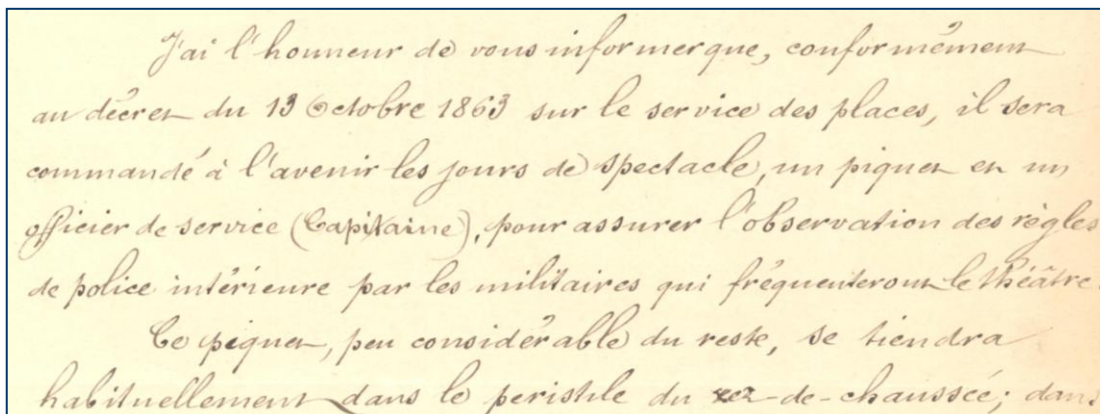 J'ai l'honneur de vous informer que, conformément
au décret du 13 Octobre 1863 sur le service des places, il sera
commandé à l'avenir les jours de spectacle, un piquet et un
officier de service (Capitaine), pour assurer l'observation des règles
de police intérieure par les militaires qui fréquenteront le théâtre.
Ce piquet, peu considérable du reste, se tiendra
habituellement dans le peristile du rez-de-chaussée; dans